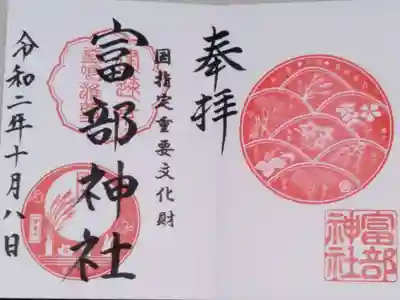 奉拝
国指定重要文化財
富部神社
令和二年十月八日
富部
神社